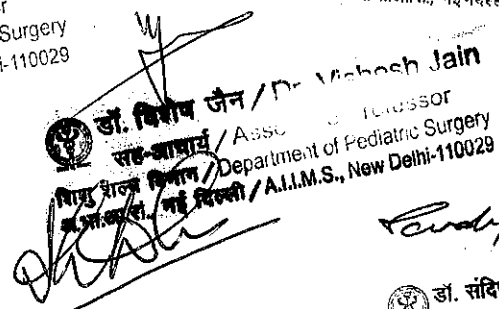 Surgery
-110029
डॉ. विशेष जैन / Dr. Vishesh Jain
सह-आचार्य / Associate Professor
शिशु शल्य विभाग / Department of Pediatric Surgery
अ.भा.आ.सं., नई दिल्ली / A.I.I.M.S., New Delhi-110029
डॉ. संदि